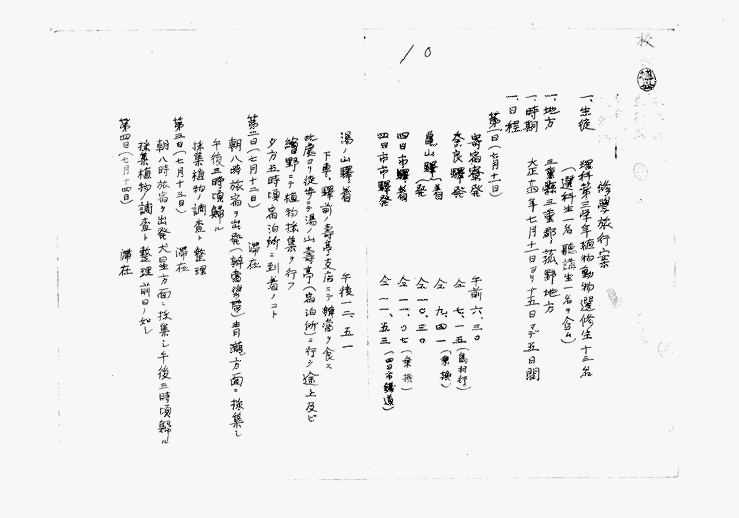 10
修學旅行案
一、生徒 理科第三学年植物動物選修生十三名
(選科生一名 聽講生一名ヲ含ム)
一、地方 三重縣三重郡 菰野地方
一、時期 大正十四年七月十一日ヨリ十五日マデ五日間
一、日程
第一日(七月十一日)
寄宿寮發 午前六.三〇
奈良驛發 仝 七.一五(島村行)
龜山驛(着 仝 九.四一(乗換)
(發 仝 一〇.三〇
四日市驛着 仝 一一.〇七(乗換)
四日市市驛發 仝 一一.五三(四日市鐵道)
湯ノ山驛着 午後一二.五一
下車、驛前ノ壽亭支店ニテ辨當ヲ食ス
此處ヨリ徒歩ニテ湯ノ山壽亭(宿泊所)ニ行ク 途上及ビ
ニテ植物採集ヲ行フ
夕方五時頃宿泊所ニ到着ノコト
第二日(七月十二日) 滞在
朝八時旅宿ヲ出発(辨當携帶)青瀧方面ニ採集シ
午後三時頃歸ル
採集植物ノ調査ト整理
第三日(七月十三日) 滞在
朝八時旅宿ヲ出発犬星方面ニ採集シ午後三時頃歸ル
採集植物ノ調査ト整理 前日ノ如シ
第四日(七月十四日) 滞在